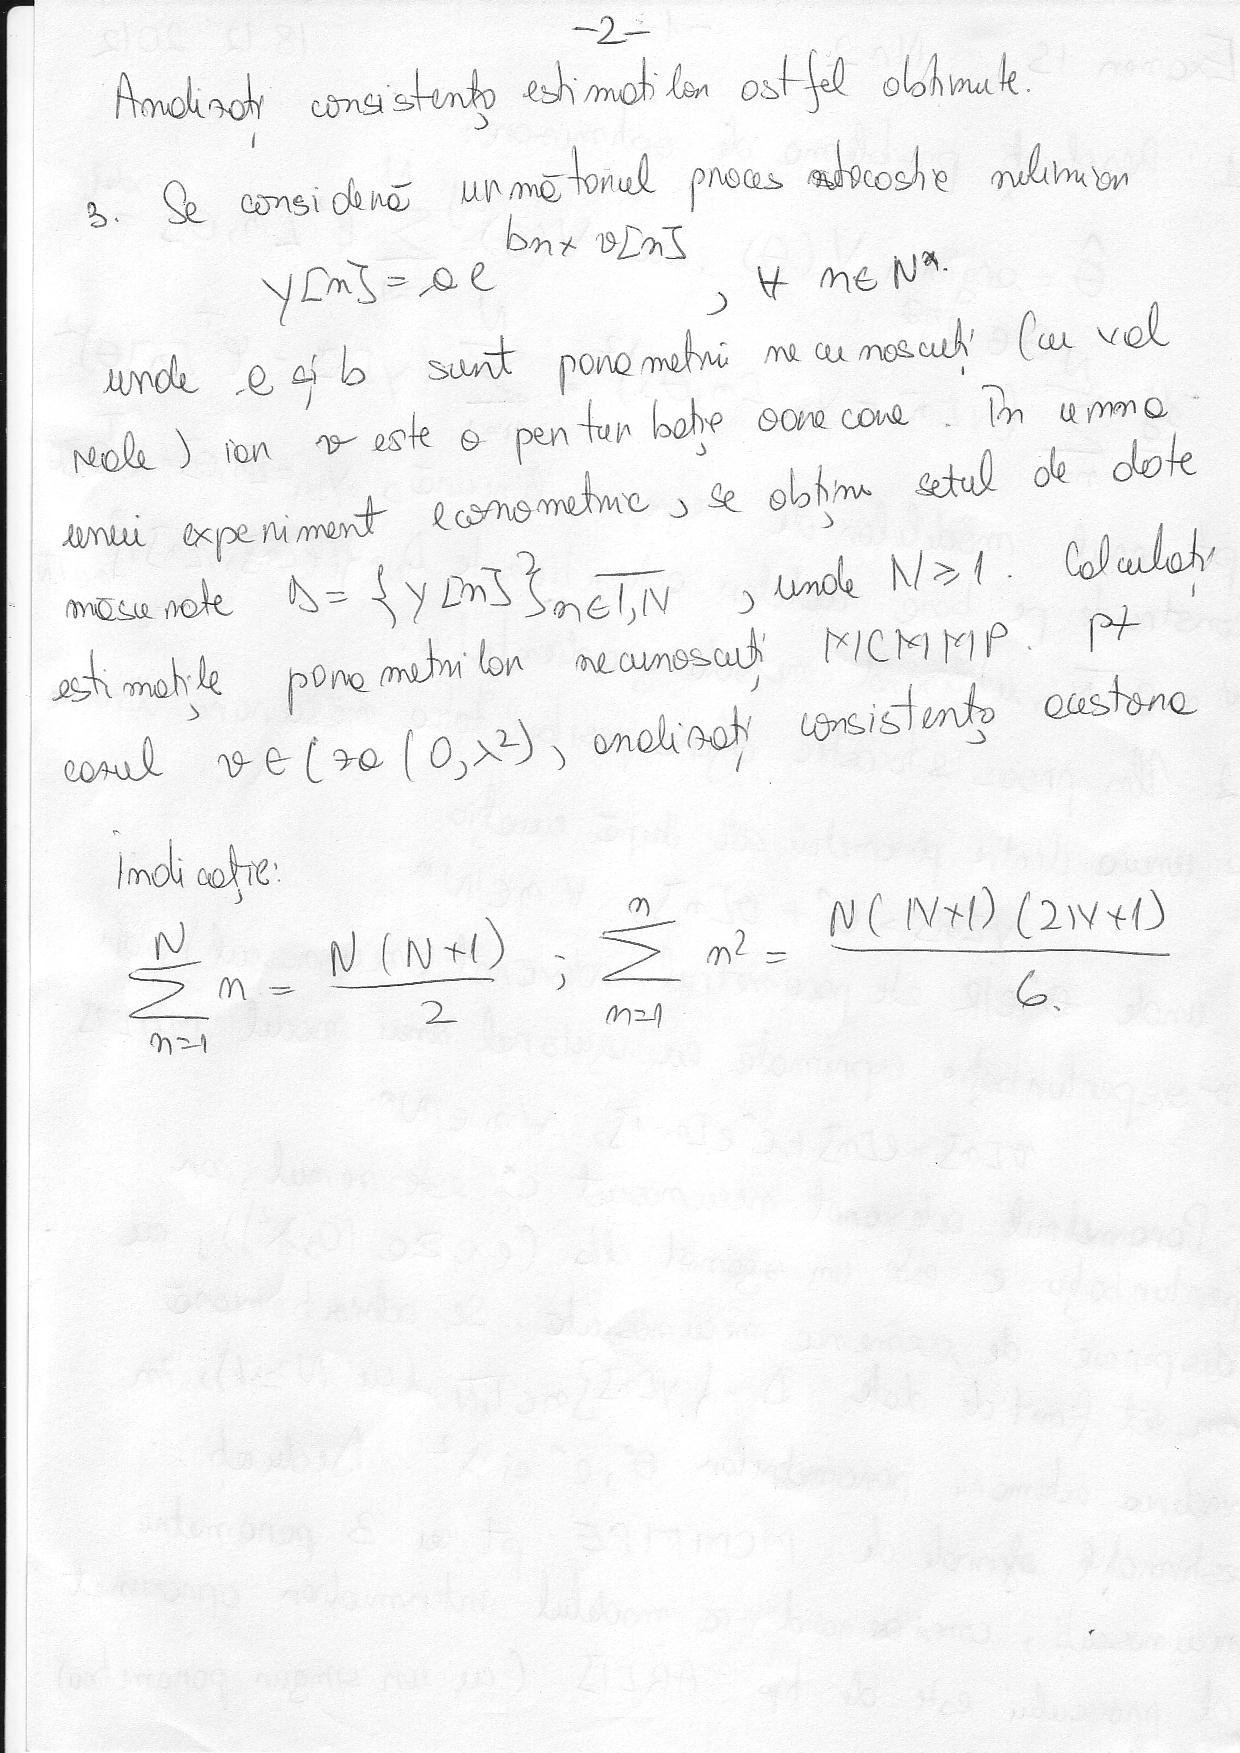 -2-
Analizați consistența estimațiilor astfel obținute.
3. Se consideră următorul proces stocastic neliniar
y[n] = a e^{bn + v[n]}, ∀ n ∈ N*.
unde a și b sunt parametrii necunoscuți (cu val
reale) iar v este o perturbație oarecare. În urma
unui experiment econometric, se obțin setul de date
măsurate D = {y[n]}_{n∈1,N}, unde N ≥ 1. Calculați
estimațile parametrilor necunoscuți MCMMP. pt
cazul v ∈ (za (0, λ²), analizați consistența acestora
Indicație:
∑_{n=1}^{N} n = N(N+1)/2 ; ∑_{n=1}^{n} n² = N(N+1)(2N+1)/6.